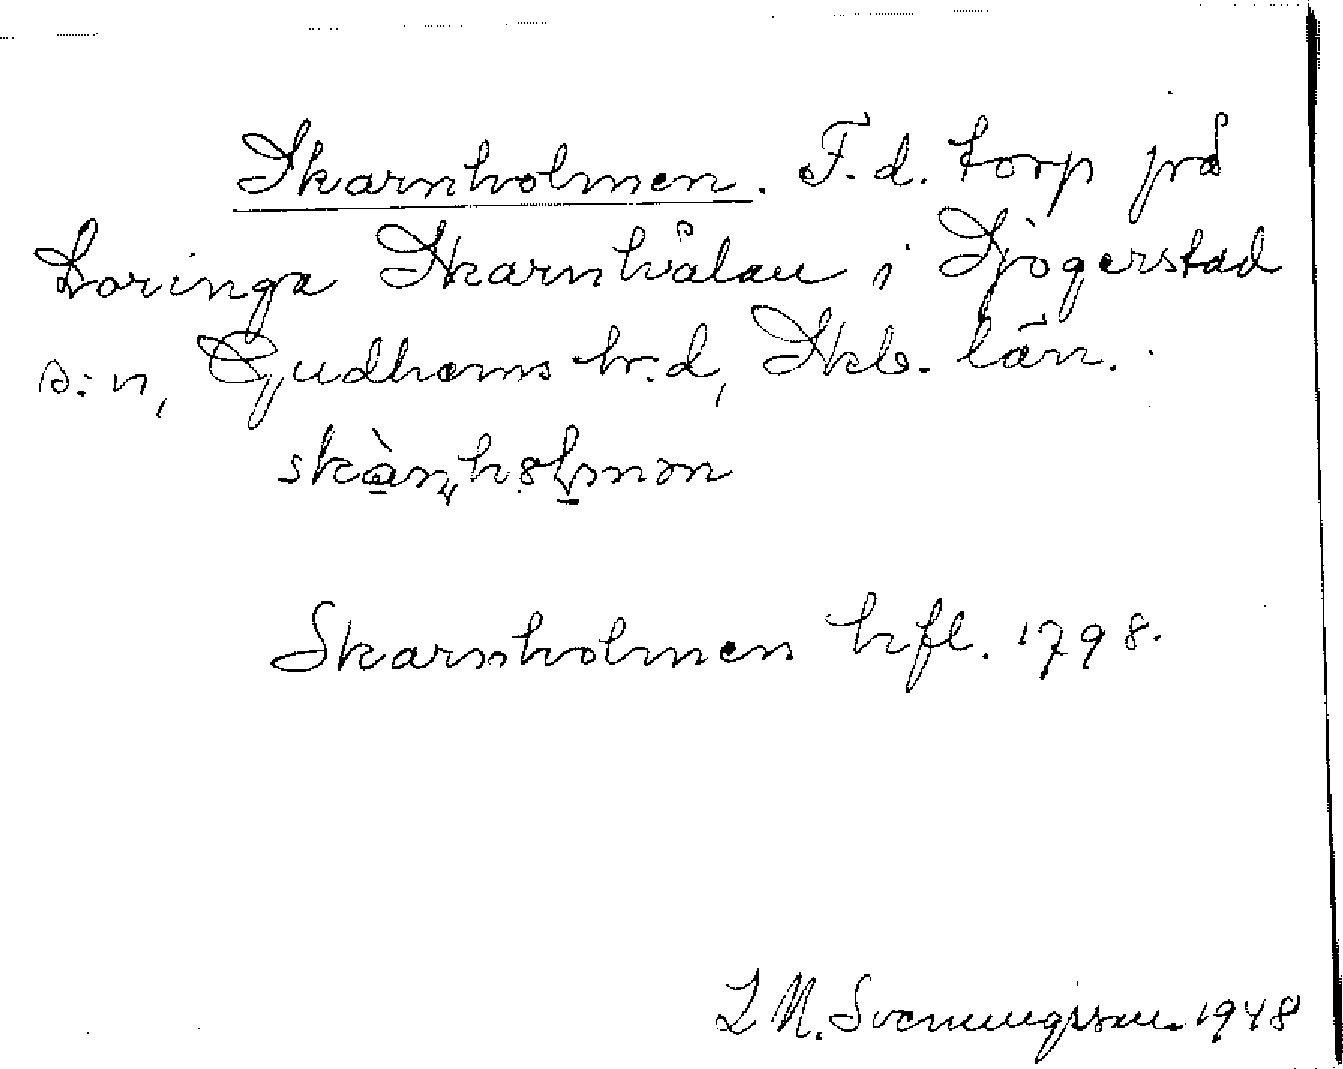 Skarnholmen. F.d. torp på
Loringa Skarnhålan i Sjögerstad
s:n, Gudhems h:d, Skb. län.
skàn̥hol̥mən
Skarnholmen hfl. 1798.
L M. Svenungsson 1948